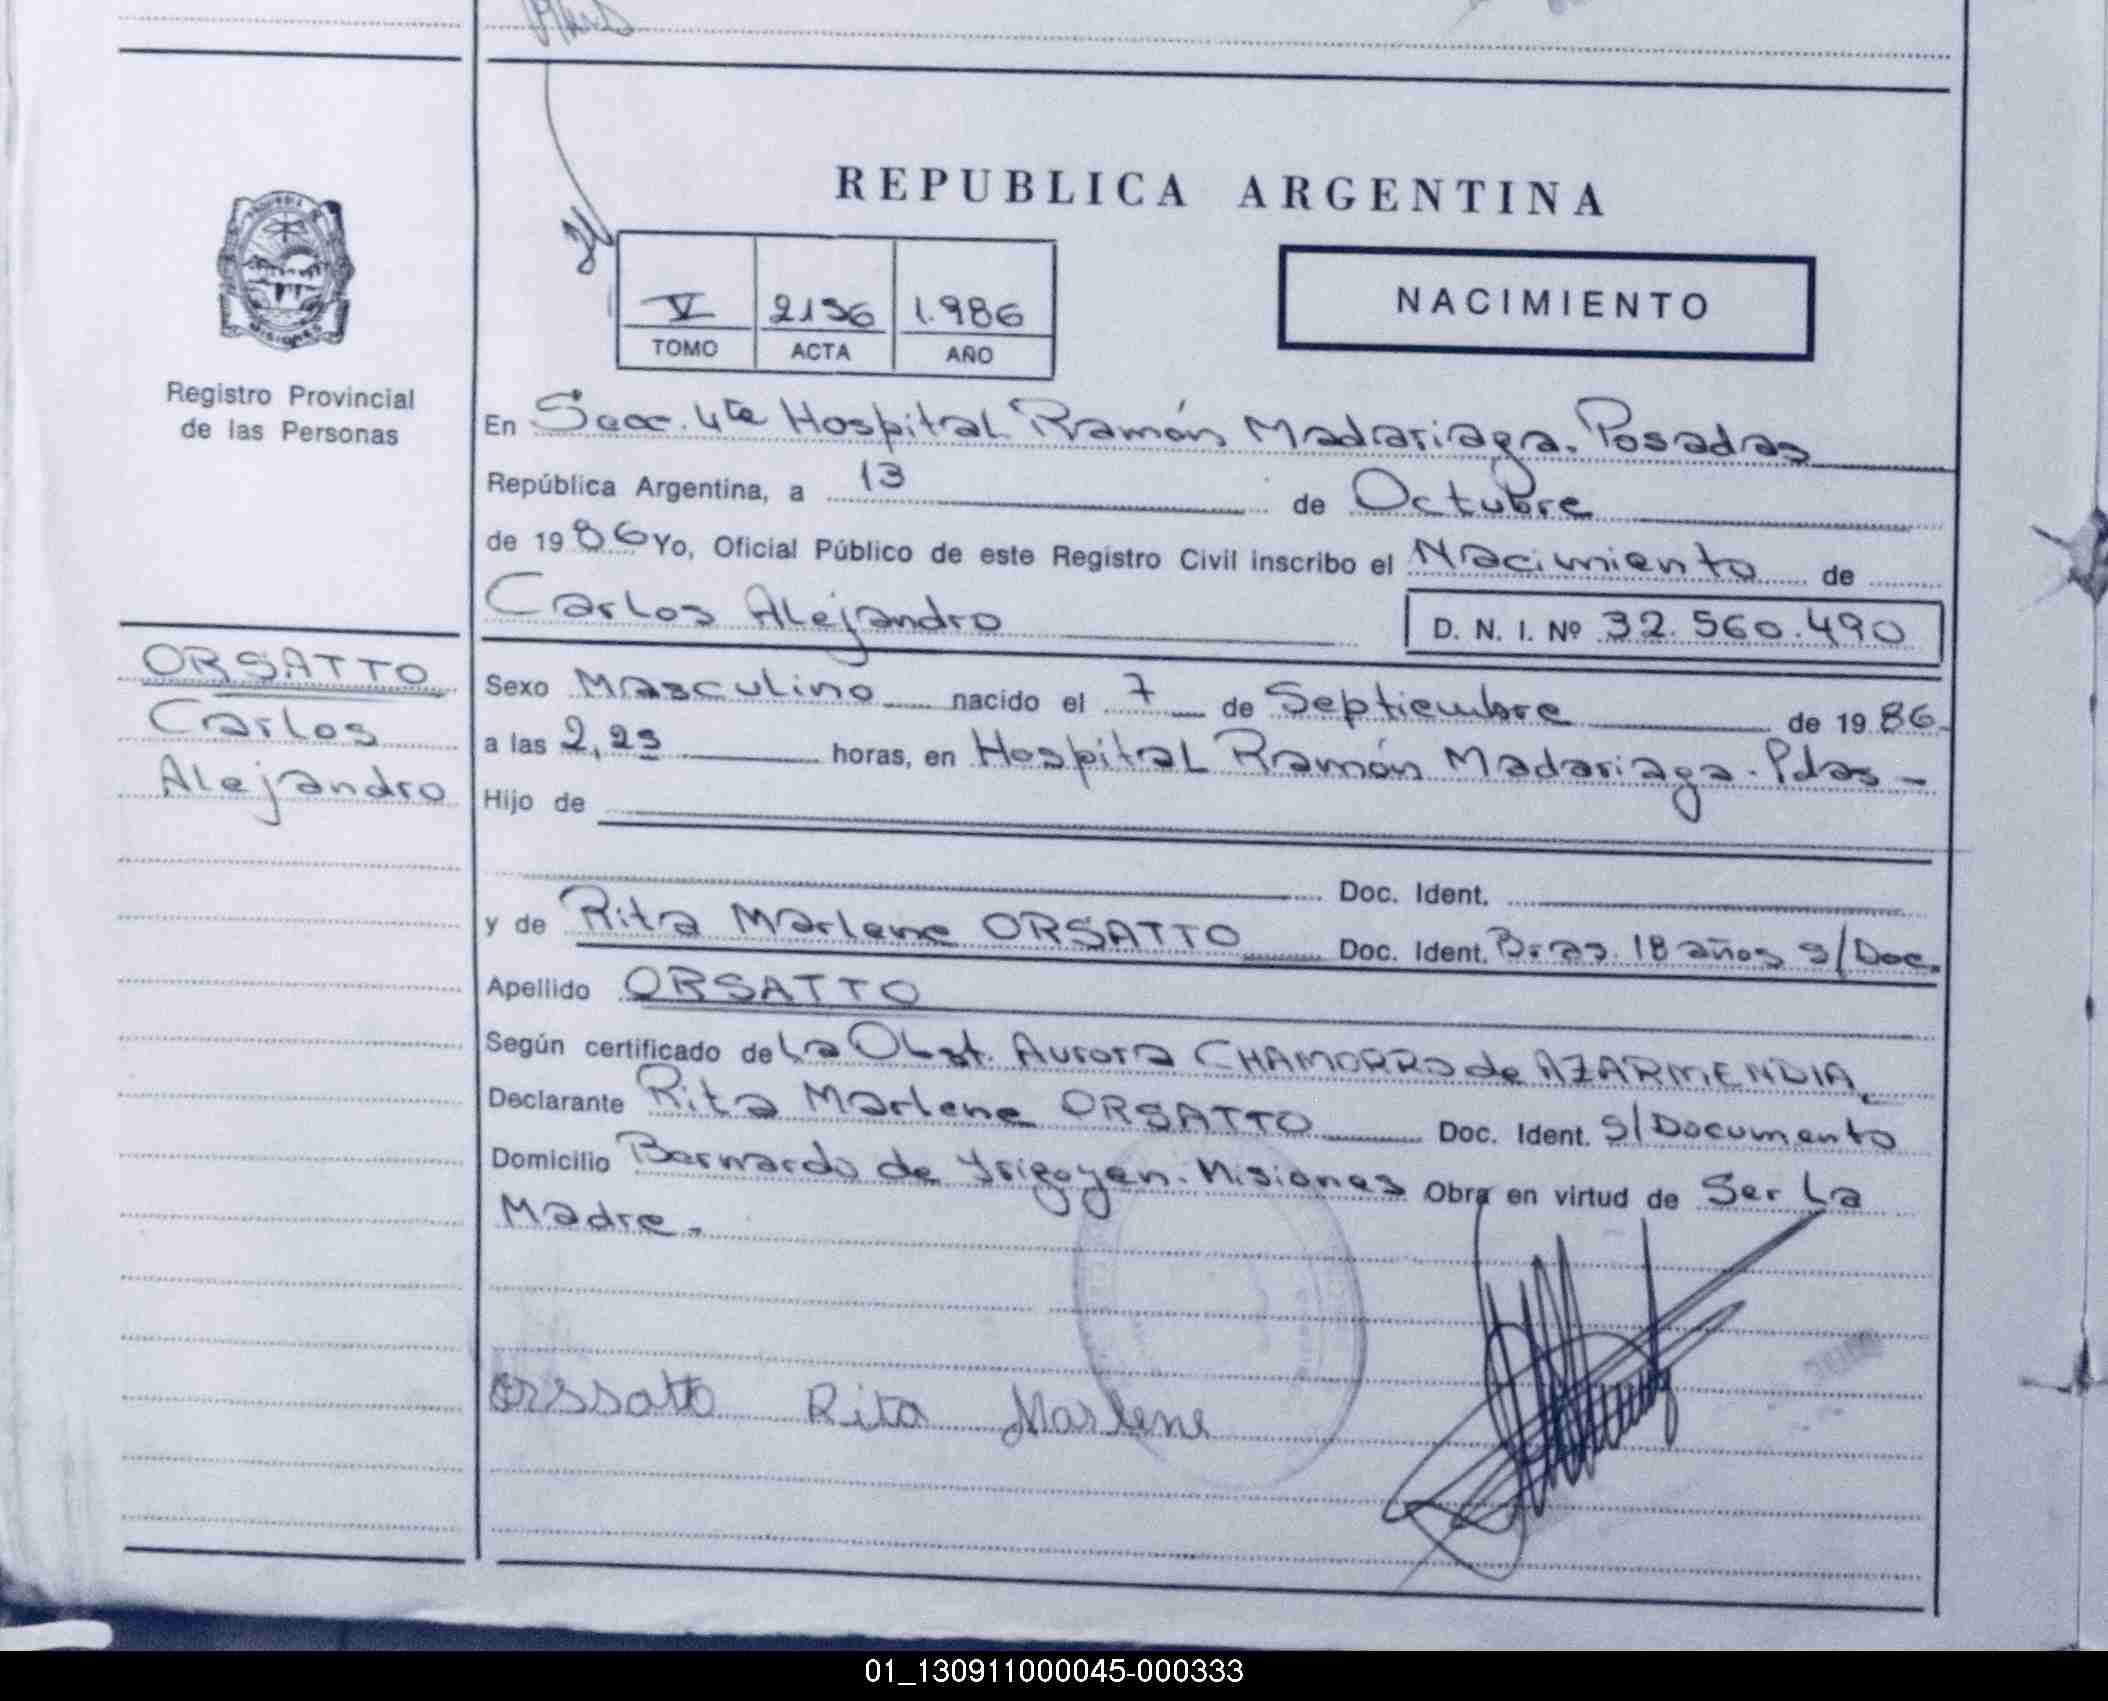 REPUBLICA ARGENTINA
V 2136 1.986
TOMO ACTA AÑO
NACIMIENTO
PROVINCIA DE
MISIONES
Registro Provincial
de las Personas
En Secc. 4ta Hospital Ramón Madariaga. Posadas
República Argentina, a 13 de Octubre
de 1986 Yo, Oficial Público de este Registro Civil inscribo el Nacimiento de
Carlos Alejandro D. N. I. Nº 32.560.490
ORSATTO
Carlos
Alejandro
Sexo Masculino nacido el 7 de Septiembre de 1986.
a las 2,25 horas, en Hospital Ramón Madariaga. Pdas -
Hijo de
Doc. Ident.
y de Rita Marlene ORSATTO Doc. Ident. Bras. 18 años s/Doc.
Apellido ORSATTO
Según certificado de la Obst. Aurora CHAMORRO de AZARMENDIA
Declarante Rita Marlene ORSATTO Doc. Ident. S/Documento
Domicilio Bernardo de Yrigoyen. Misiones Obra en virtud de Ser la
Madre.
Orssatto Rita Marlene
01_130911000045-000333